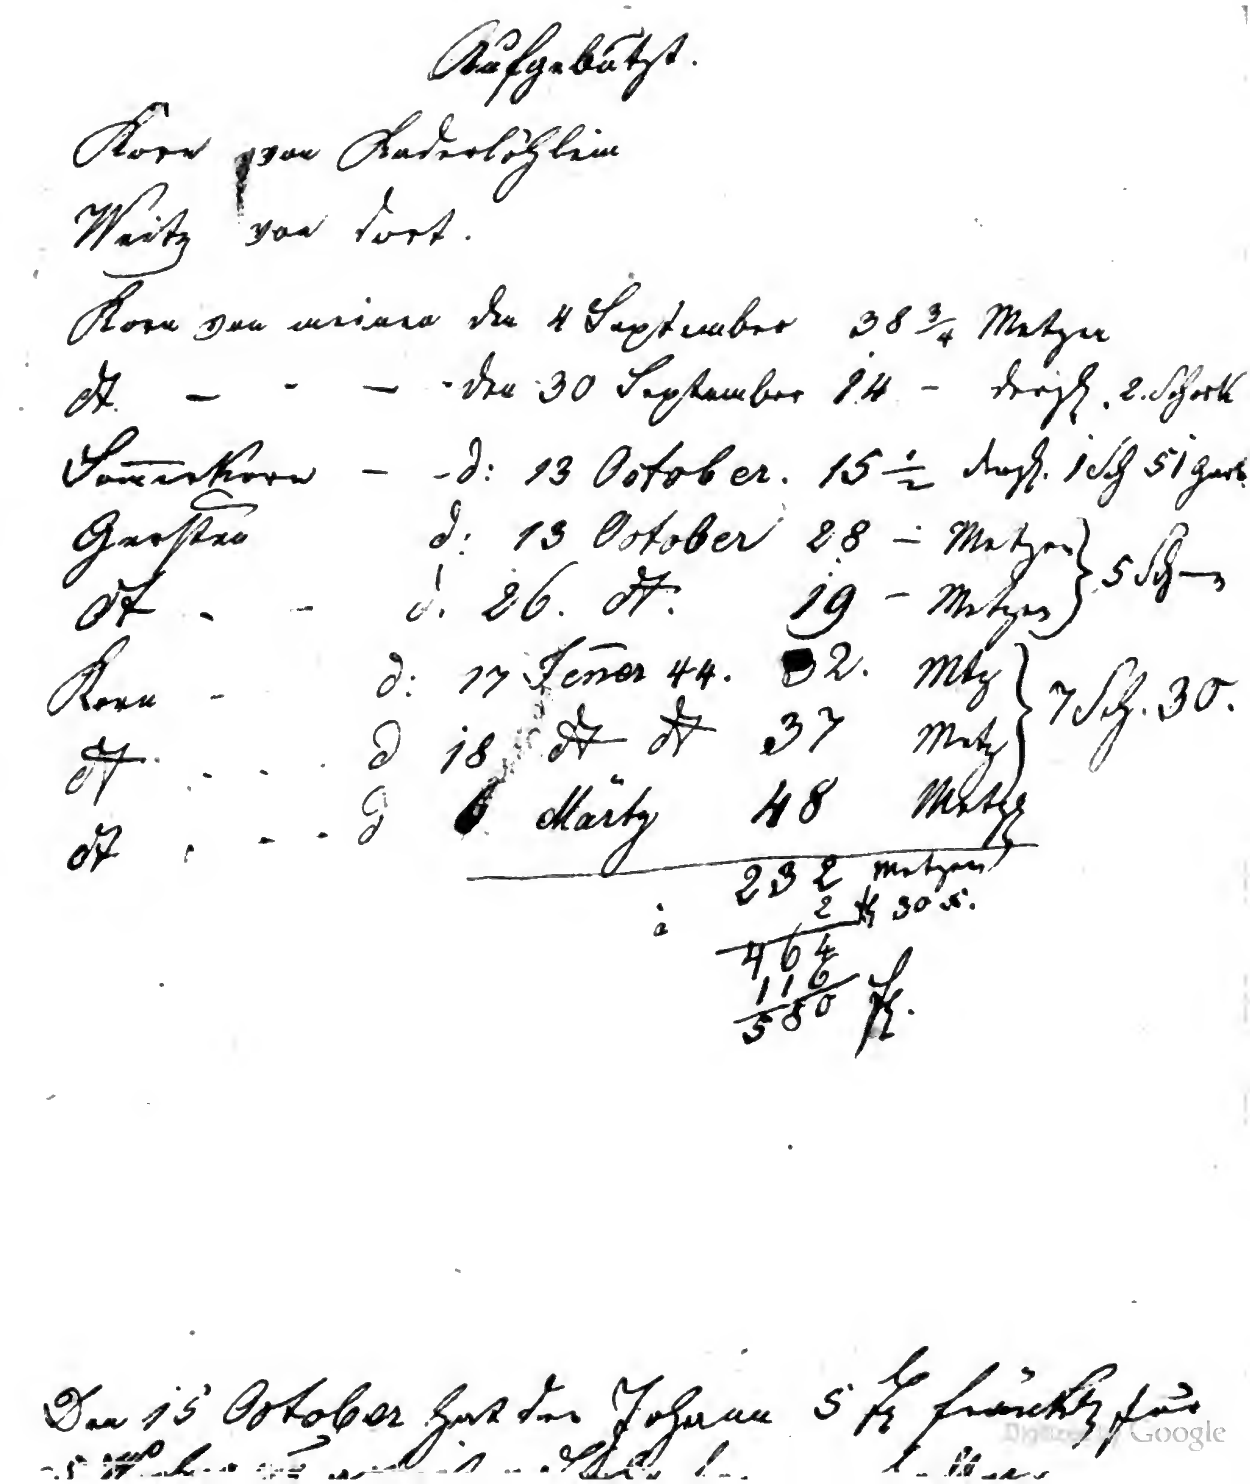 Aufgebutzt.
Korn von Baderlöhlein
Weitz von dort.
Korn von meinen den 4 September 38 3/4 Metzen
dt — - — - den 30 September 14 - dergl. 2. Schock
Som̄erkorn — - d: 13 October. 15 1/2 dergl. 1 Sch 51 garb.
Gersten d: 13 October 28 — Metzen
dt - - d. 26. dt. 19 — Metzen } 5 Sch
Korn - d: 17 Jen̄er 44. 32. Mtz
dt . . . d 18 dt dt 37 Metz } 7 Sch. 30.
dt . - - d 6 Märtz 48 Metz
232 Metzen
à 2 fl 30 x.
464
116
580 fl.
Den 15 October hat der Johann 5 fl für
Digitized by Google